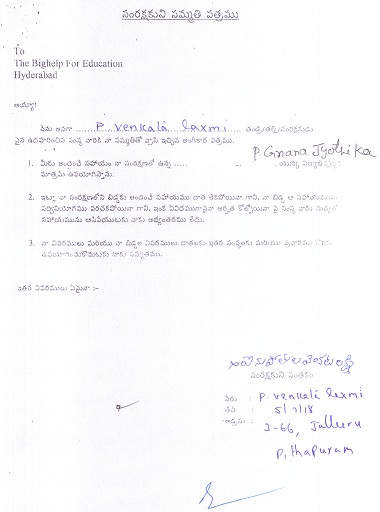 సంరక్షకుని సమ్మతి పత్రము
To
The Bighelp For Education
Hyderabad
అయ్యా!
నేను అనగా ........P. Venkata Laxmi.... తండ్రి/తల్లి/సంరక్షకుడు
పైన ఉదహరించిన సంస్థ వారికి నా సమ్మతితో వ్రాసి ఇచ్చిన అంగీకార పత్రము.
P Gnana Jyothika
1. మీరు అందించే సహాయం నా సంరక్షణలో ఉన్న ..... యొక్క విద్యాభివృద్ధికి
మాత్రమే ఉపయోగిస్తాను.
2. ఇట్లా నా సంరక్షణలోని బిడ్డకు అందించే సహాయము దాత లేకపోయినా గాని, నా బిడ్డ ఆ సహాయమును
సద్వినియోగము పరచకపోయినా గాని, ఇంకే విధముగానైనా అర్హత కోల్పోయినా పై సంస్థ వారు
సహాయమును ఆపివేయుటకు నాకు అభ్యంతరము లేదు.
3. నా వివరములు మరియు నా బిడ్డల వివరములు దాతలకు ఇతర సంస్థలకు మరియు ప్రచారము కొరకు
ఉపయోగించుకొనుటకు నాకు సమ్మతము.
ఇతర వివరములు ఏమైనా :-
సంరక్షకుని సంతకం
పేరు : P. Venkata Laxmi
తేది : 5/7/18
అడ్రసు : 3-66, Jalluru
Pithapuram